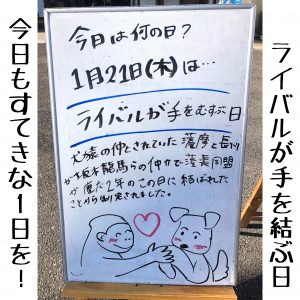 ライバルが手を結ぶ日
今日は何の日?
1月21日(木)は…
ライバルが手をむすぶ日
犬猿の仲とされていた薩摩と長州
が坂本龍馬らの仲介で薩長同盟
が慶応2年のこの日に結ばれた
ことから制定されました。
今日もすてきな1日を!